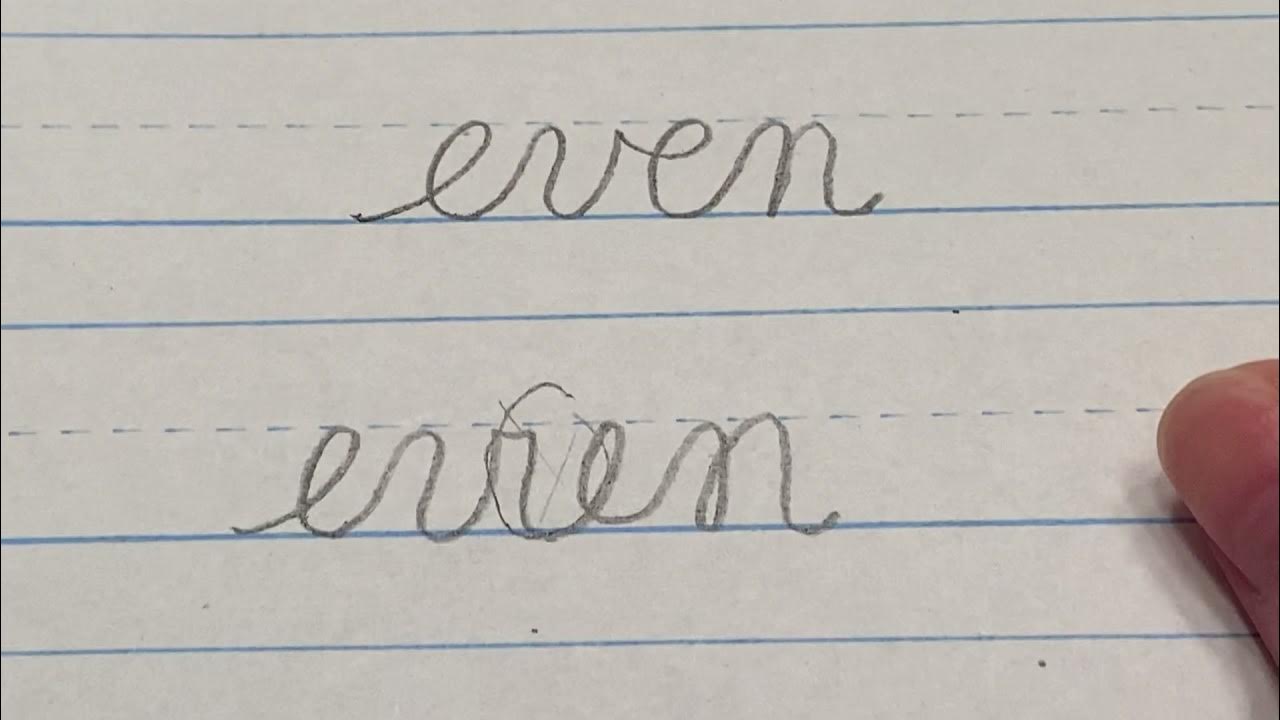 even
even